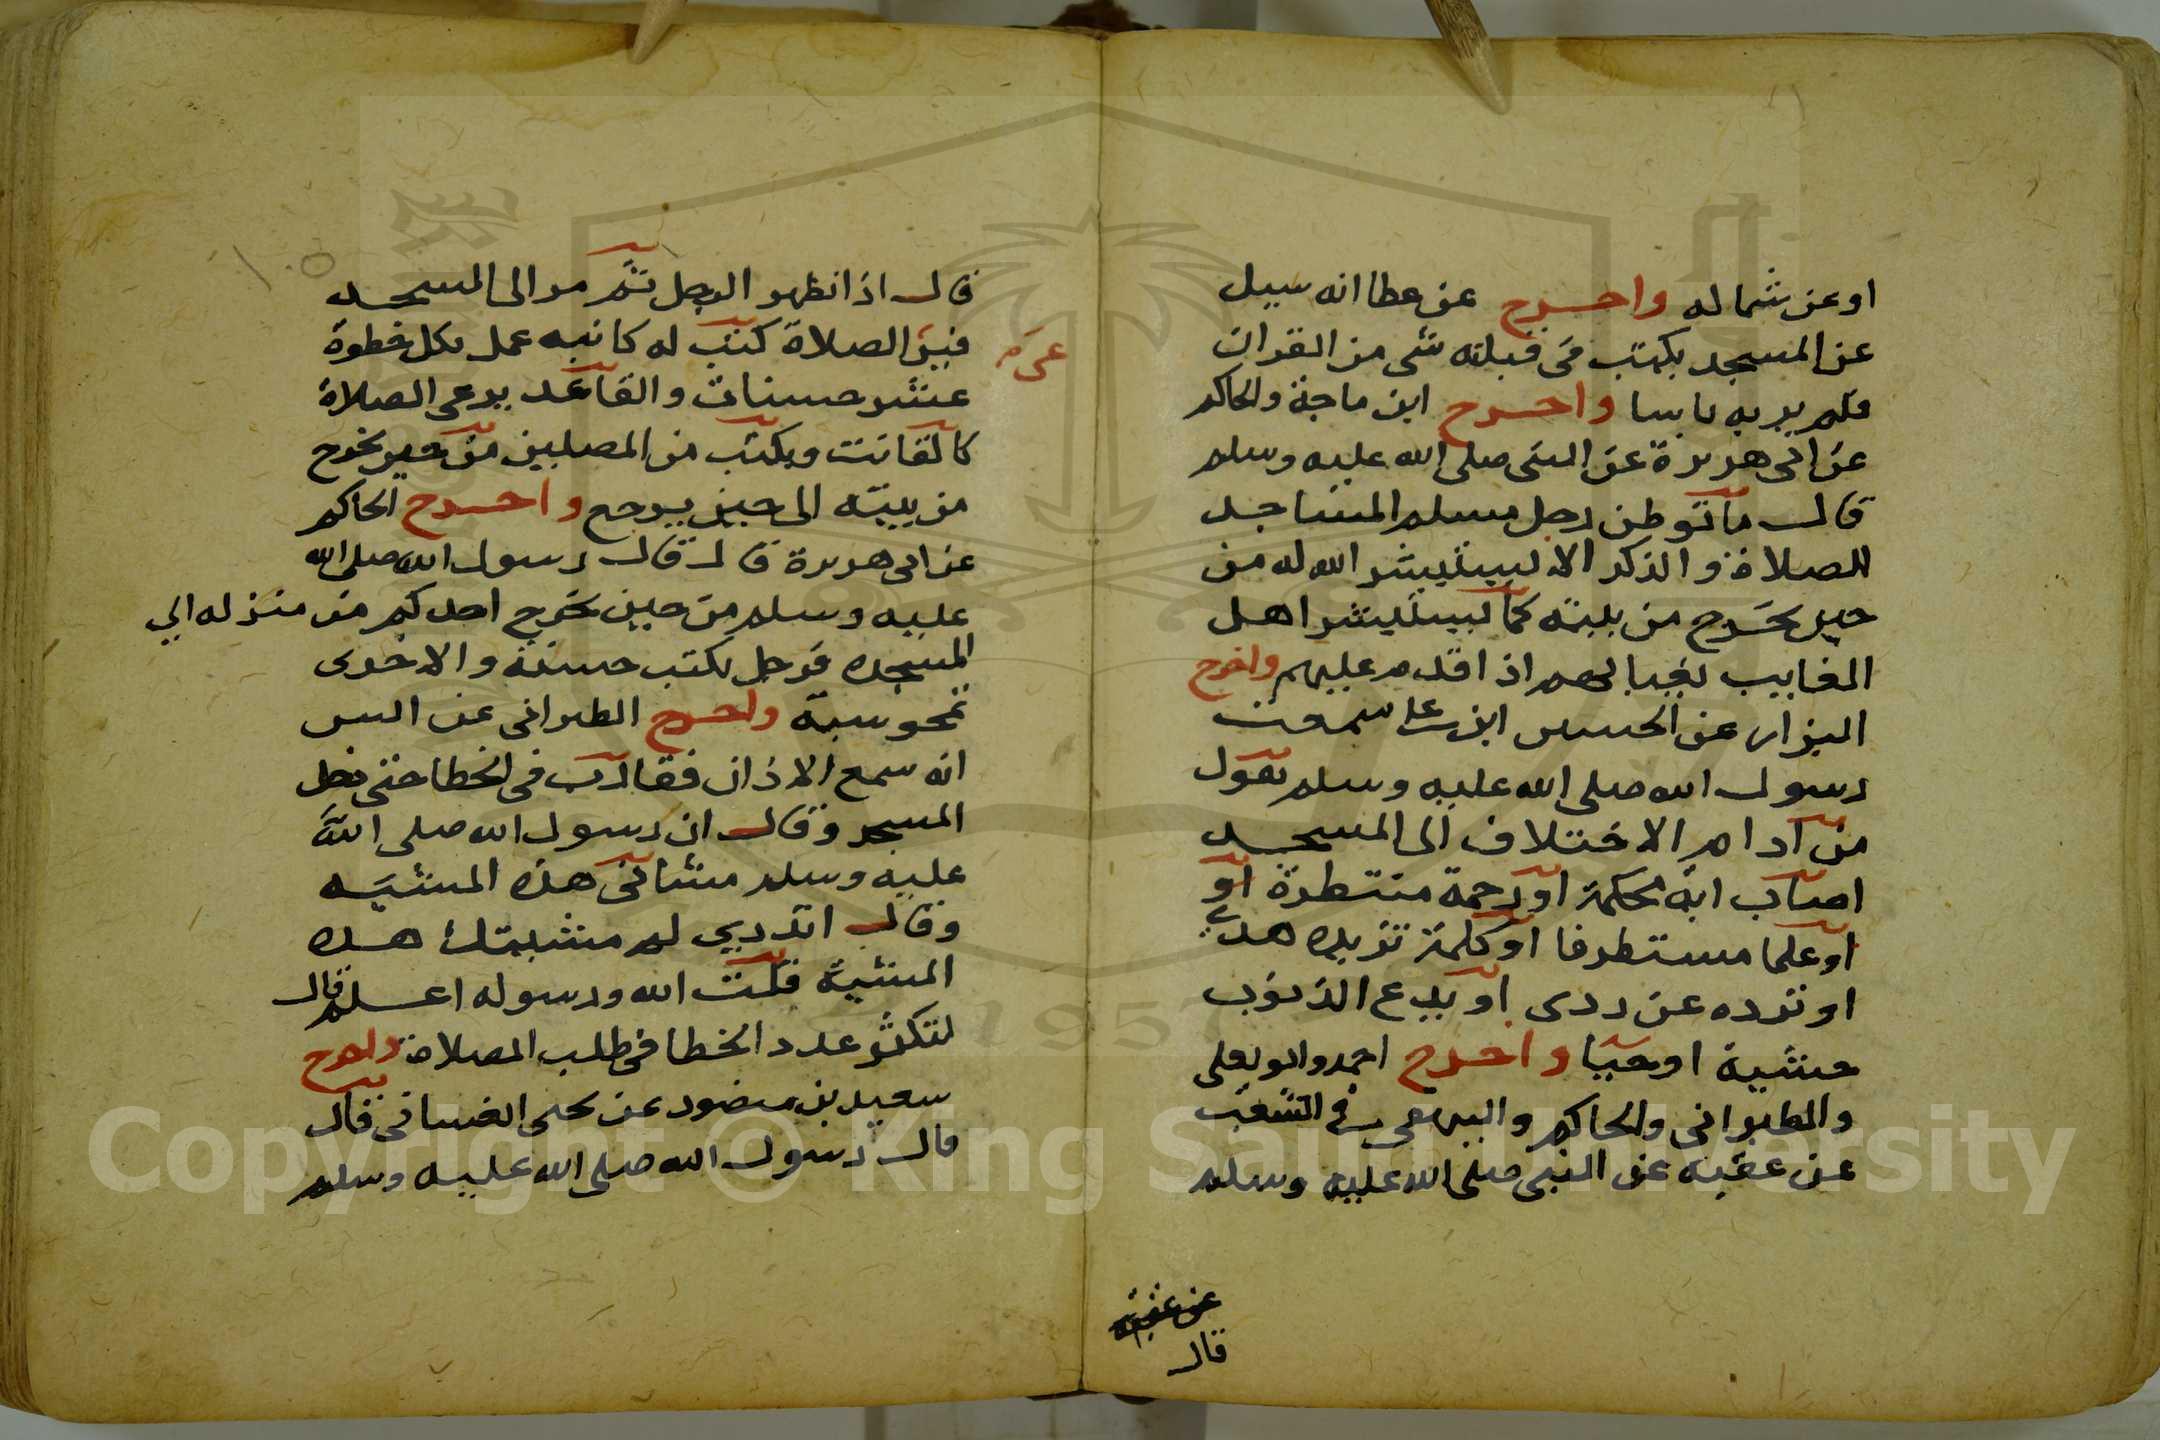 او عن شماله واخرج عن عطا انه سيل
عن المسجد يكتب في قبلته شي من القران
فلم ير به باسا واخرج ابن ماجة والحاكم
عن ابي هريرة عن النبي صلى الله عليه وسلم
قال ما توطن رجل مسلم المساجد
للصلاة والذكر الا ليبشبش الله له من
حين يخرج من بيته كما ليبشبش اهل
الغايب بغايبهم اذا قدم عليهم واخرج
البزار عن الحسن ابن علي سمعت
رسول الله صلى الله عليه وسلم يقول
من ادام الاختلاف الى المسجد
اصاب اية محكمة او رحمة منتظرة او
او علما مستطرفا او كلمة تزيده هدى
او ترده عن ردى او يدع الذنوب
خشية او حيا واخرج احمد وابو يعلى
والطبراني والحاكم والبيهقي في الشعب
عن عقبة عن النبي صلى الله عليه وسلم
عن عقبة
قال
قال اذا تطهر الرجل ثم مر الى المسجد
فيرى الصلاة كتب له كاتبه عمل بكل خطوة
عشر حسنات والقاعد يرعى الصلاة
كالقانت ويكتب من المصلين من حين يخرج
من بيته الى حين يرجع واخرج الحاكم
عن ابي هريرة قال قال رسول الله صلى الله
عليه وسلم من حين يخرج احدكم من منزله الي
المسجد فرجل يكتب حسنة والاخرى
تمحو سية واخرج الطبراني عن انس
انه سمع الاذان فقارب في الخطا حتى دخل
المسجد وقال ان رسول الله صلى الله
عليه وسلم مشاني هذه المشيه
وقال اتدري لم مشيتك هذه
المشية قلت الله ورسوله اعلم قال
لتكثر عدد الخطا في طلب الصلاة واخرج
سعيد بن منصور عن يحيى الغساني قال
قال رسول الله صلى الله عليه وسلم
Copyright © King Saud University
1957